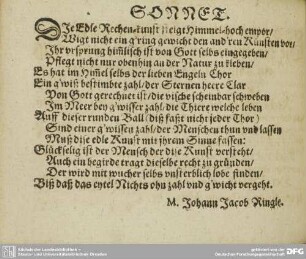 SONNET.
DJe Edle Rechenkunst steigt Himmel-hoch empor/
Wigt nicht ein g'ring gewicht den and'ren Künsten vor/
Jhr vrsprung himlisch ist von Gott selbs eingegeben/
Pflegt nicht nur obenhin an der Natur zu kleben/
Es hat im Himel selbs der lieben Engeln Chor
Ein g'wiß bestimbte zahl/ der Sternen heere clar
Von Gott gerechnet ist/ die vische scheinbar schweben
Jm Meer bey g'wisser zahl/ der Thiere welche leben
Auff dieser runden Ball (diß faßt nicht jeder Thor)
Sind einer g'wissen zahl/ der Menschen thun vnd lassen
Muß dise edle Kunst mit jhrem Sinne fassen:
Glückselig ist der Mensch der dise Kunst versteht/
Auch ein begirde tragt dieselbe recht zu gründen/
Der wird mit wucher selbs vnsterblich lobe finden/
Biß daß das eytel Nichts ohn zahl vnd g'wicht vergeht.
M. Johann Jacob Ringle.